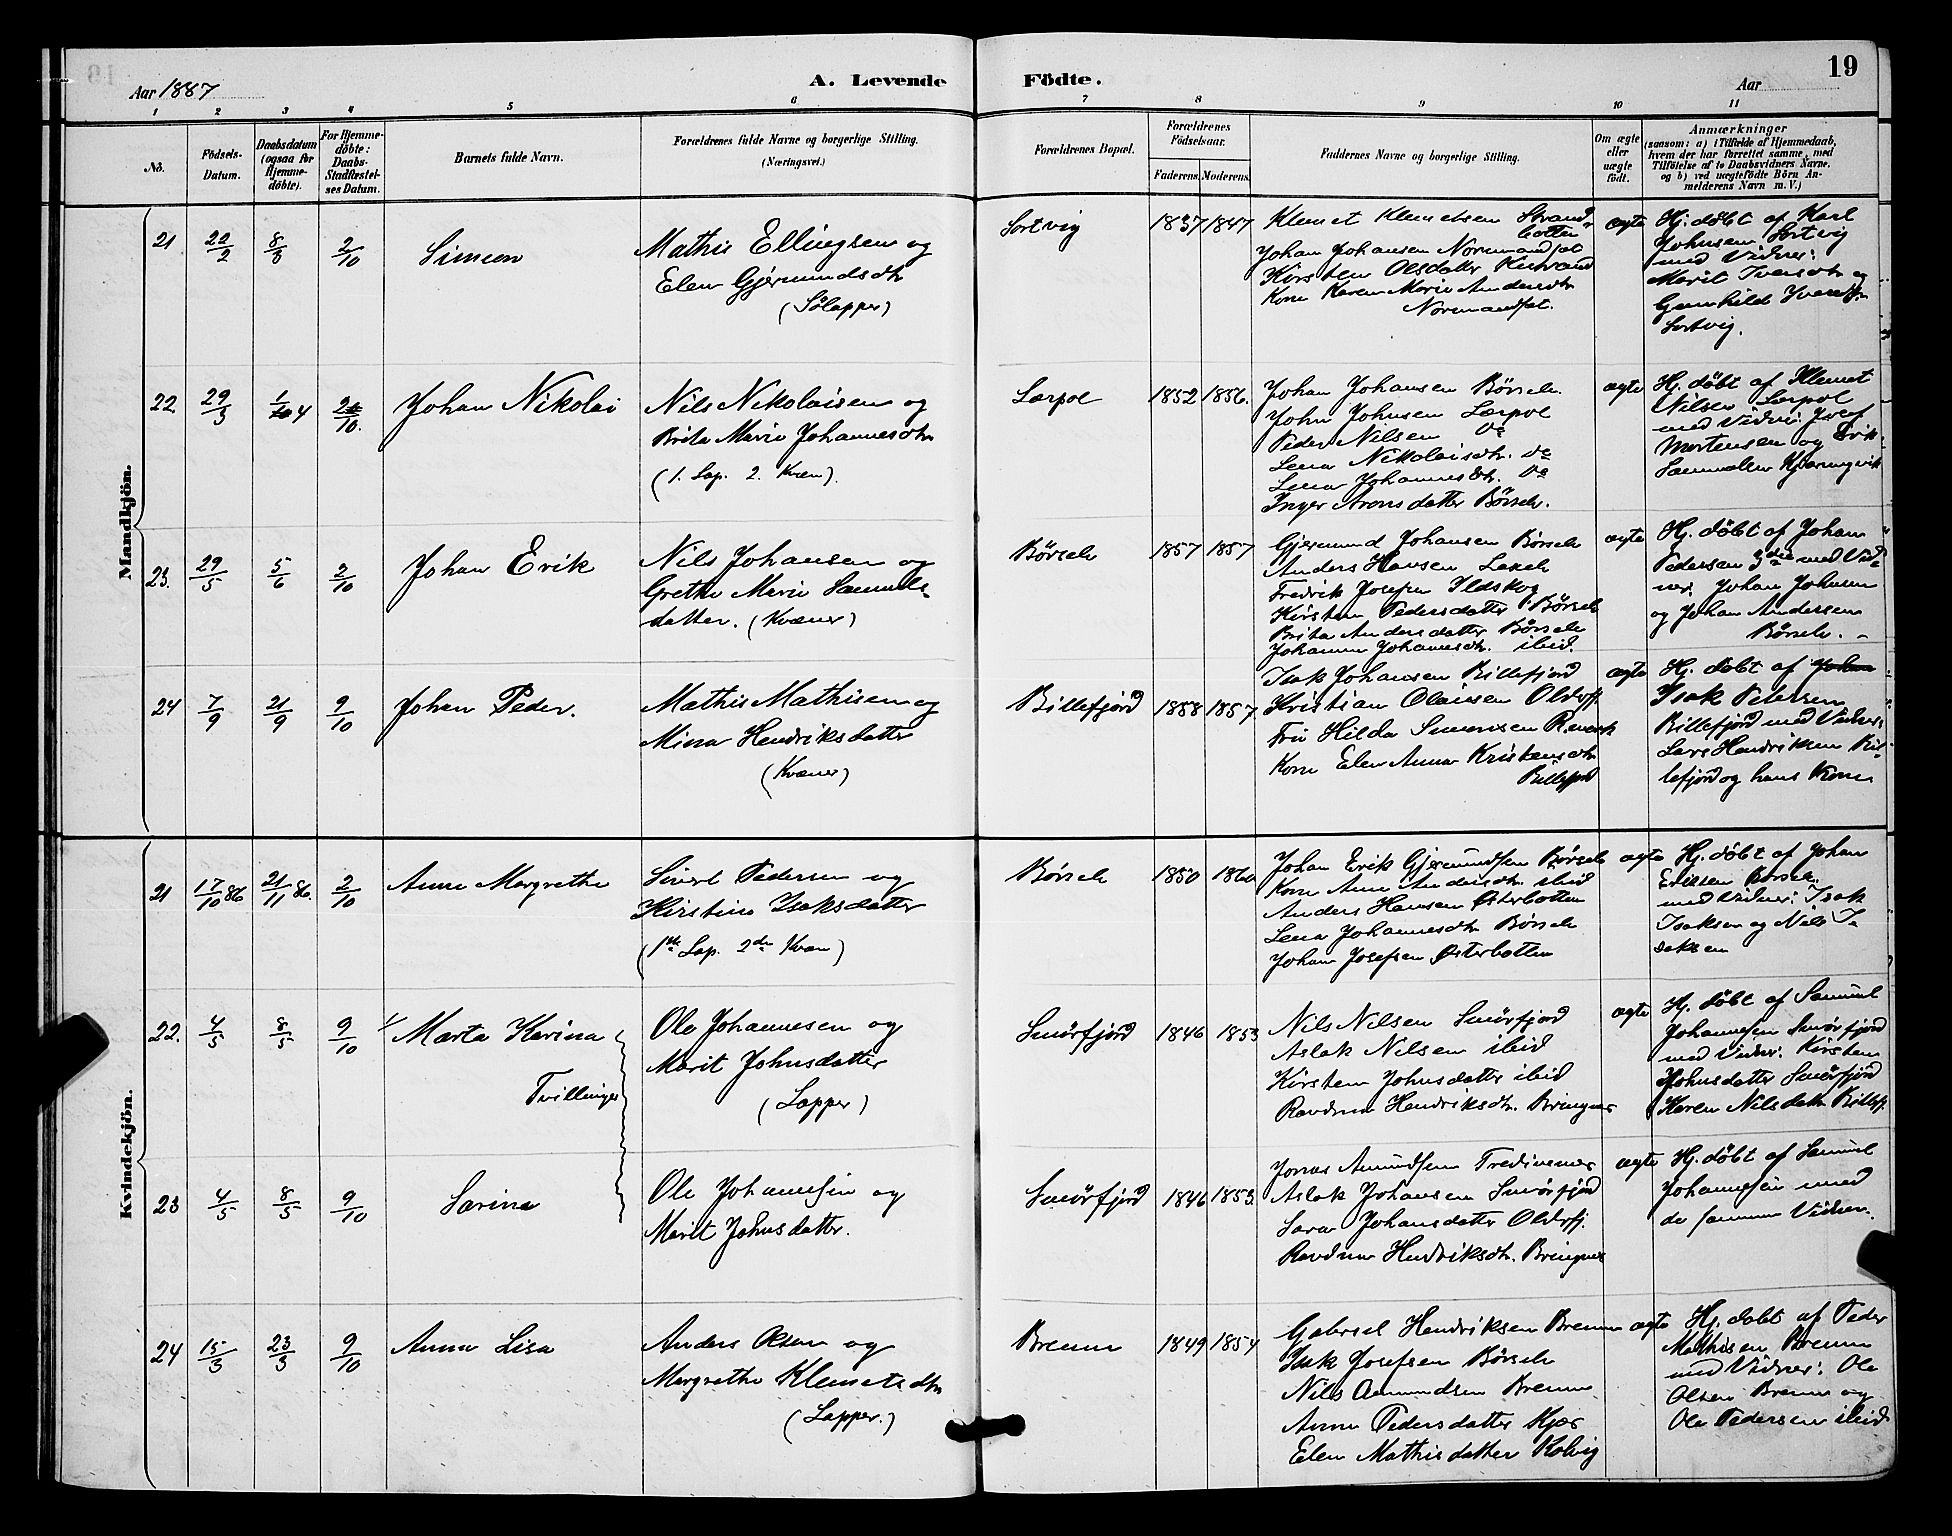 Aar 1887
A. Levende Födte.
Aar
19
1 2 3 4 5 6 7 8 9 10 11
No.
Födsels-
Datum.
Daabsdatum
(ogsaa for
Hjemme-
döbte).
For Hjemme-
döbte:
Daabs-
Stadfæstel-
ses Datum.
Barnets fulde Navn.
Forældrenes fulde Navne og borgerlige Stilling.
(Næringsvei.)
Forældrenes Bopæl.
Forældrenes
Födselsaar.
Faderens. Moderens.
Faddernes Navne og borgerlige Stilling.
Om ægte
eller
uægte
födt.
Anmærkninger
(saasom: a) i Tilfælde af Hjemmedaab,
hvem der har forrettet samme, med
Tilföielse af to Daabsvidners Navne,
og b) ved uægtefödte Börn An-
melderens Navn m. V.)
Mandkjön.
21. 22/2 8/3 2/10 Simeon
Mathis Ellingsen og
Elen Gjermundsdtr
(Sölapper)
Sortvig 1837 1847
Klemet Klemetsen Strand-
botten
Johan Johansen Normandset
Kirsten Olsdatter Kistrand
Kone Karen Marie Andersdtr
Normandset.
ægte
Hj. döbt af Karl
Johnsen Sortvig
med Vidner:
Marit Iversdtr og
Gunhild Iversdtr
Sortvig.
22 29/3 1/4 2/10. Johan Nikolai
Nils Nikolaisen og
Brita Marie Johannesdtr
(1. Lap. 2. Kvæn).
Lærpol 1852 1856.
Johan Johansen Börselv.
John Johnsen Lærpol
Peder Nilsen Do
Lena Nikolaisdtr. Do
Lena Johannesdtr. Do
Inger Aronsdatter Börselv.
ægte
Hj. döbt af Klemet
Nilsen Lærpol
med Vidner: Josef
Mortensen og Erik
Samuelsen Kjæringvik
23. 29/5 5/6 2/10 Johan Erik
Nils Johansen og
Grethe Marie Samuels-
datter. (Kvæner)
Börselv 1857 1857
Gjermund Johansen Börselv
Anders Hansen Laxelv
Fredrik Josefsen Ildskog
Kirsten Pedersdatter Börselv
Brita Andersdatter Börselv
Johanne Johannesdtr. ibid.
ægte
Hj. döbt af Johan
Pedersen 3die med Vid-
ner: Johan Johnsen
og Johan Andersen
Börselv.
24 7/9 21/9 9/10 Johan Peder.
Mathis Mathisen og
Mina Hendriksdatter
(Kvæner)
Billefjord 1858 1857
Isak Johansen Billefjord
Kristian Olaisen Olderfj.
Fru Hilda Simonsen Renæsk
Kone Elen Anna Kristensdtr
Billefjord
ægte
Hj. döbt af Johan
Isak Petersen
Billefjord med Vidner:
Lars Hendriksen Bil-
lefjord og hans Kone
Kvindekjön.
21 17/10 86 21/11 86. 2/10 Anne Margrethe
Sivert Pedersen og
Kirstine Isaksdatter
(1ste Lap. 2den Kvæn)
Börselv 1850 1860
Johan Erik Gjermundsen Börselv
Kone Anne Andersdtr. ibid
Anders Hansen Österbotten
Lena Johannesdtr Börselv
Johan Josefsen Österbotten
ægte
Hj. döbt af Johan
Eriksen Börselv.
med Vidner: Isak
Isaksen og Nils I-
saksen
22. 4/5 8/5 9/10 Marta Karina
Tvillinger
Ole Johannesen og
Marit Johnsdatter
(Lapper)
Smörfjord 1846 1853
Nils Nilsen Smörfjord
Aslak Nilsen ibid
Kirsten Johnsdatter ibid
Ravdna Hendriksdtr. Bringnes
ægte
Hj. döbt af Samuel
Johannesen Smörfjord
med Vidner: Kirsten
Johnsdatter Smörfjord
Karen Nilsdatter Billefj.
23 4/5 8/5 9/10 Sarine
Ole Johannesen og
Marit Johnsdatter.
Smörfjord 1846 1853
Jonas Amundsen Tredivenes
Aslak Johansen Smörfjord
Sara Johansdatter Olderfj.
Ravdna Hendriksdtr. Bringnes
ægte
Hj. döbt af Samuel
Johannesen med
de samme Vidner.
24 15/3 23/3 9/10 Anna Lisa
Anders Olsen og
Margrethe Klemetsdtr
(Lapper.)
Brenna 1849 1854
Gabriel Hendriksen Brenna
Isak Josefsen Börselv
Nils Amundsen Brenna
Anne Pedersdatter Kjæs
Elen Mathisdatter Kolvig
ægte
Hj. döbt af Peder
Mathisen Brenna
med Vidner: Ole
Olsen Brenna og
Ole Pedersen ibid